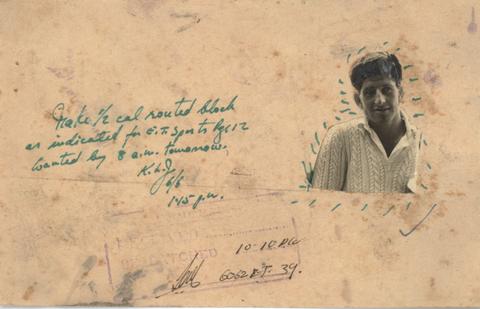 Make ½ col routed block
as indicated for E.T. Sports Pg 12
Wanted by 8 a.m. tomorrow.
6/6
1.45 p.m.
10-10 P.M.
39.